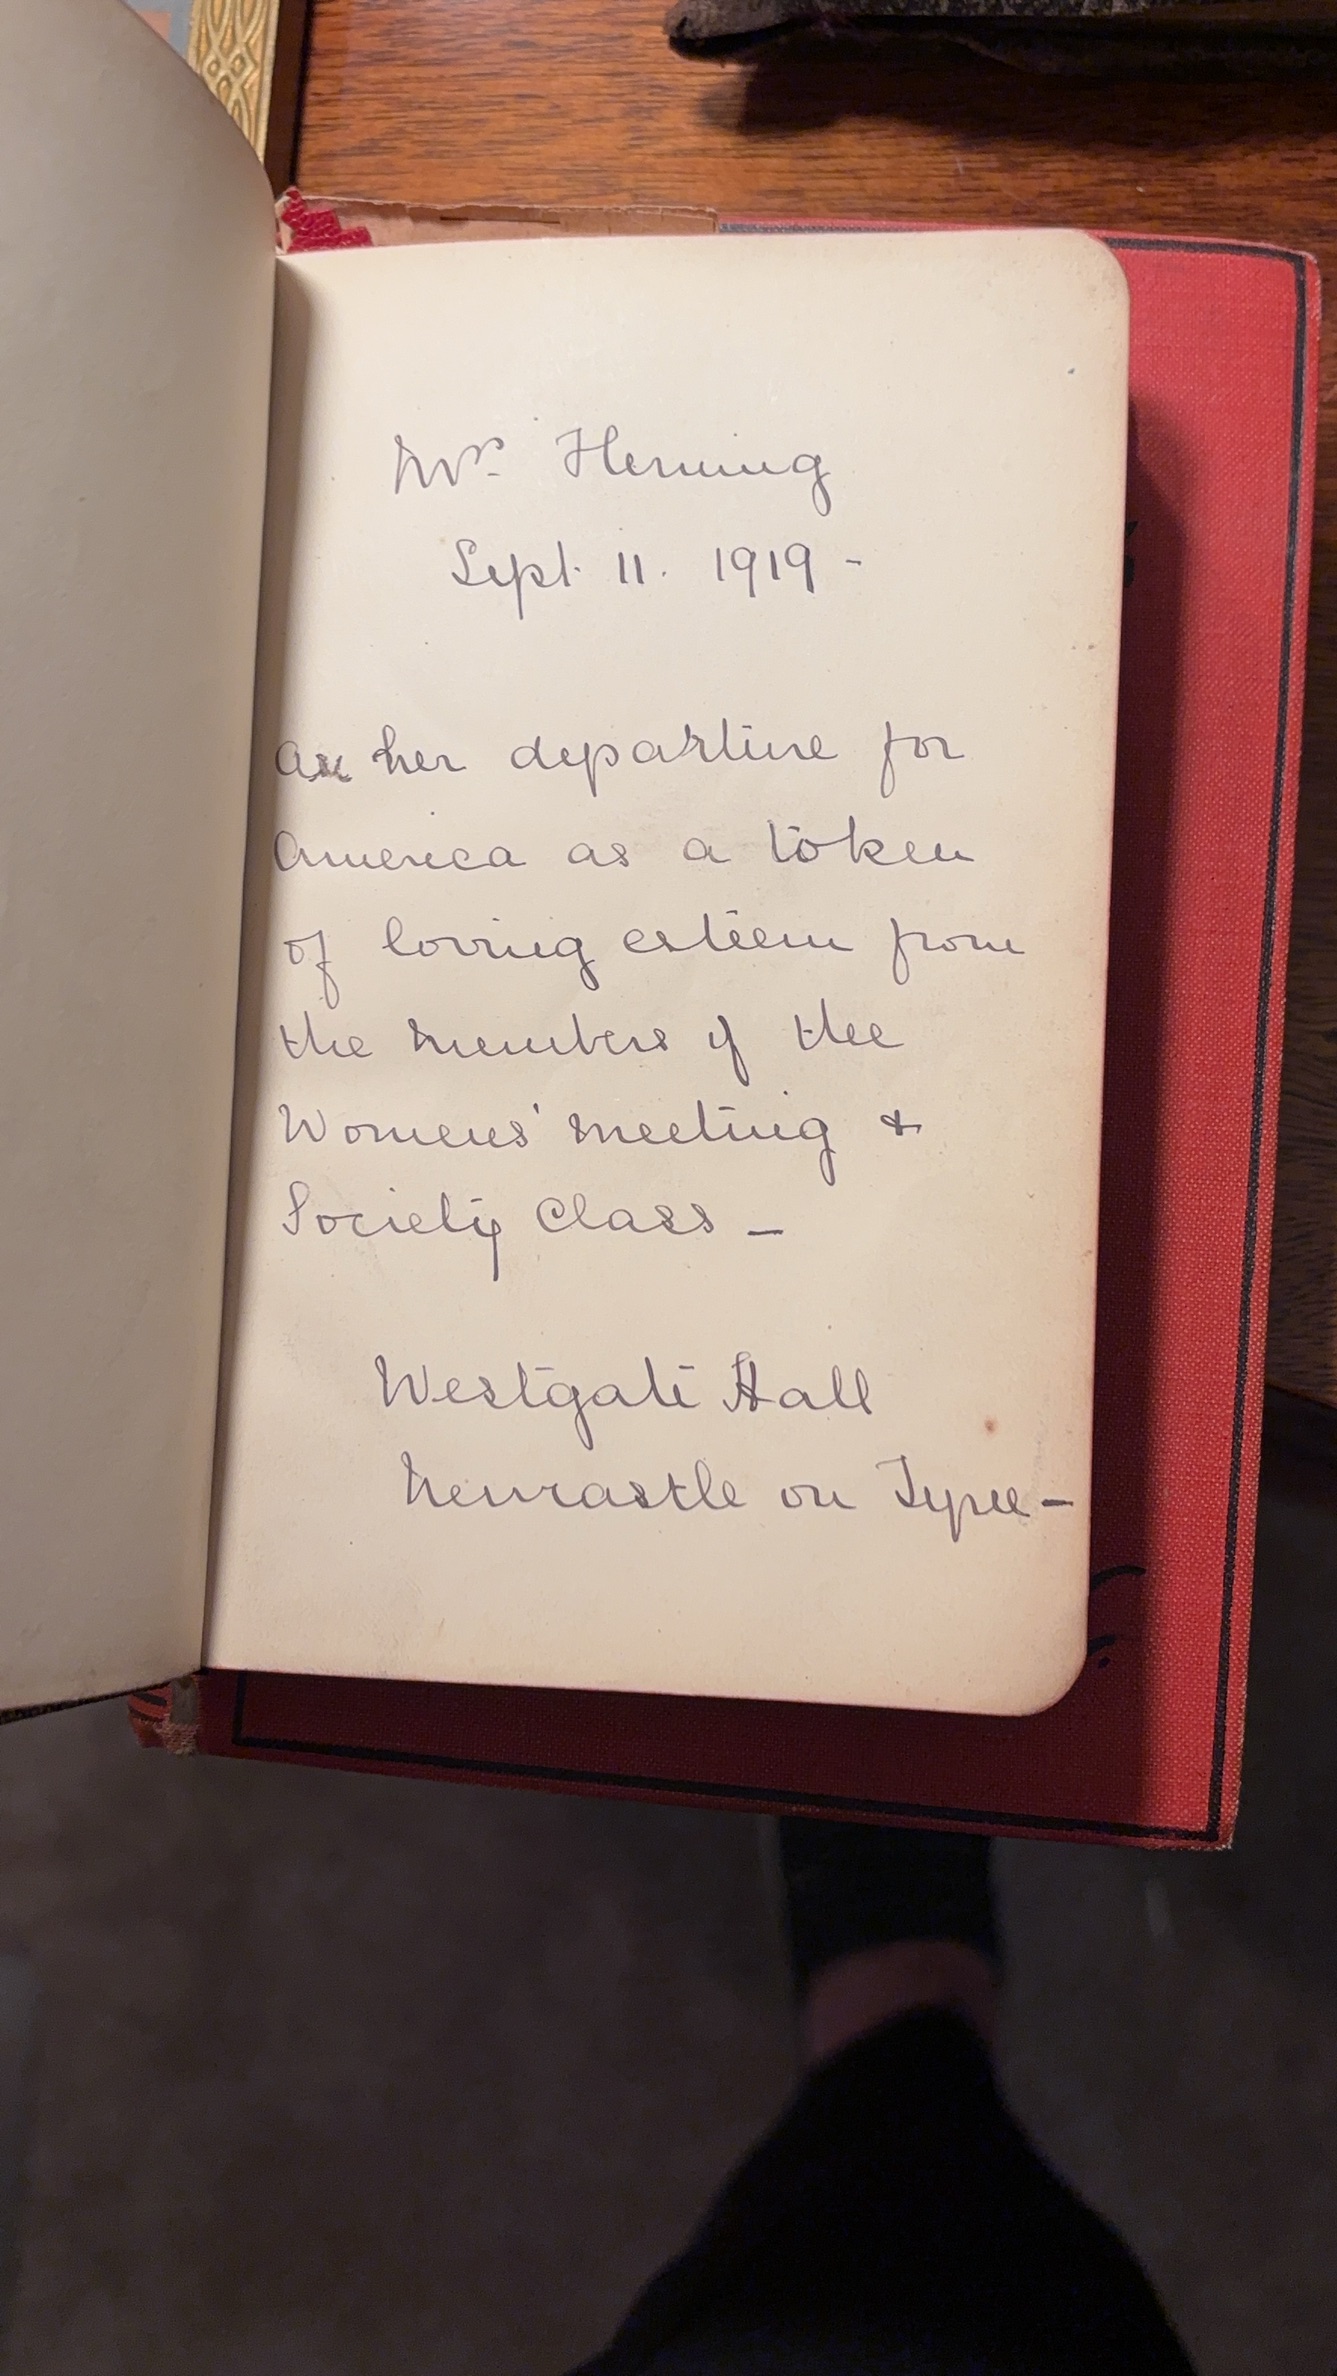 Mrs. Fleming
Sept. 11. 1919 -
her departure for
America as a token
of loving esteem from
the members of the
Womens' meeting &
Society Class -
Westgate Hall
Newcastle on Tyne -